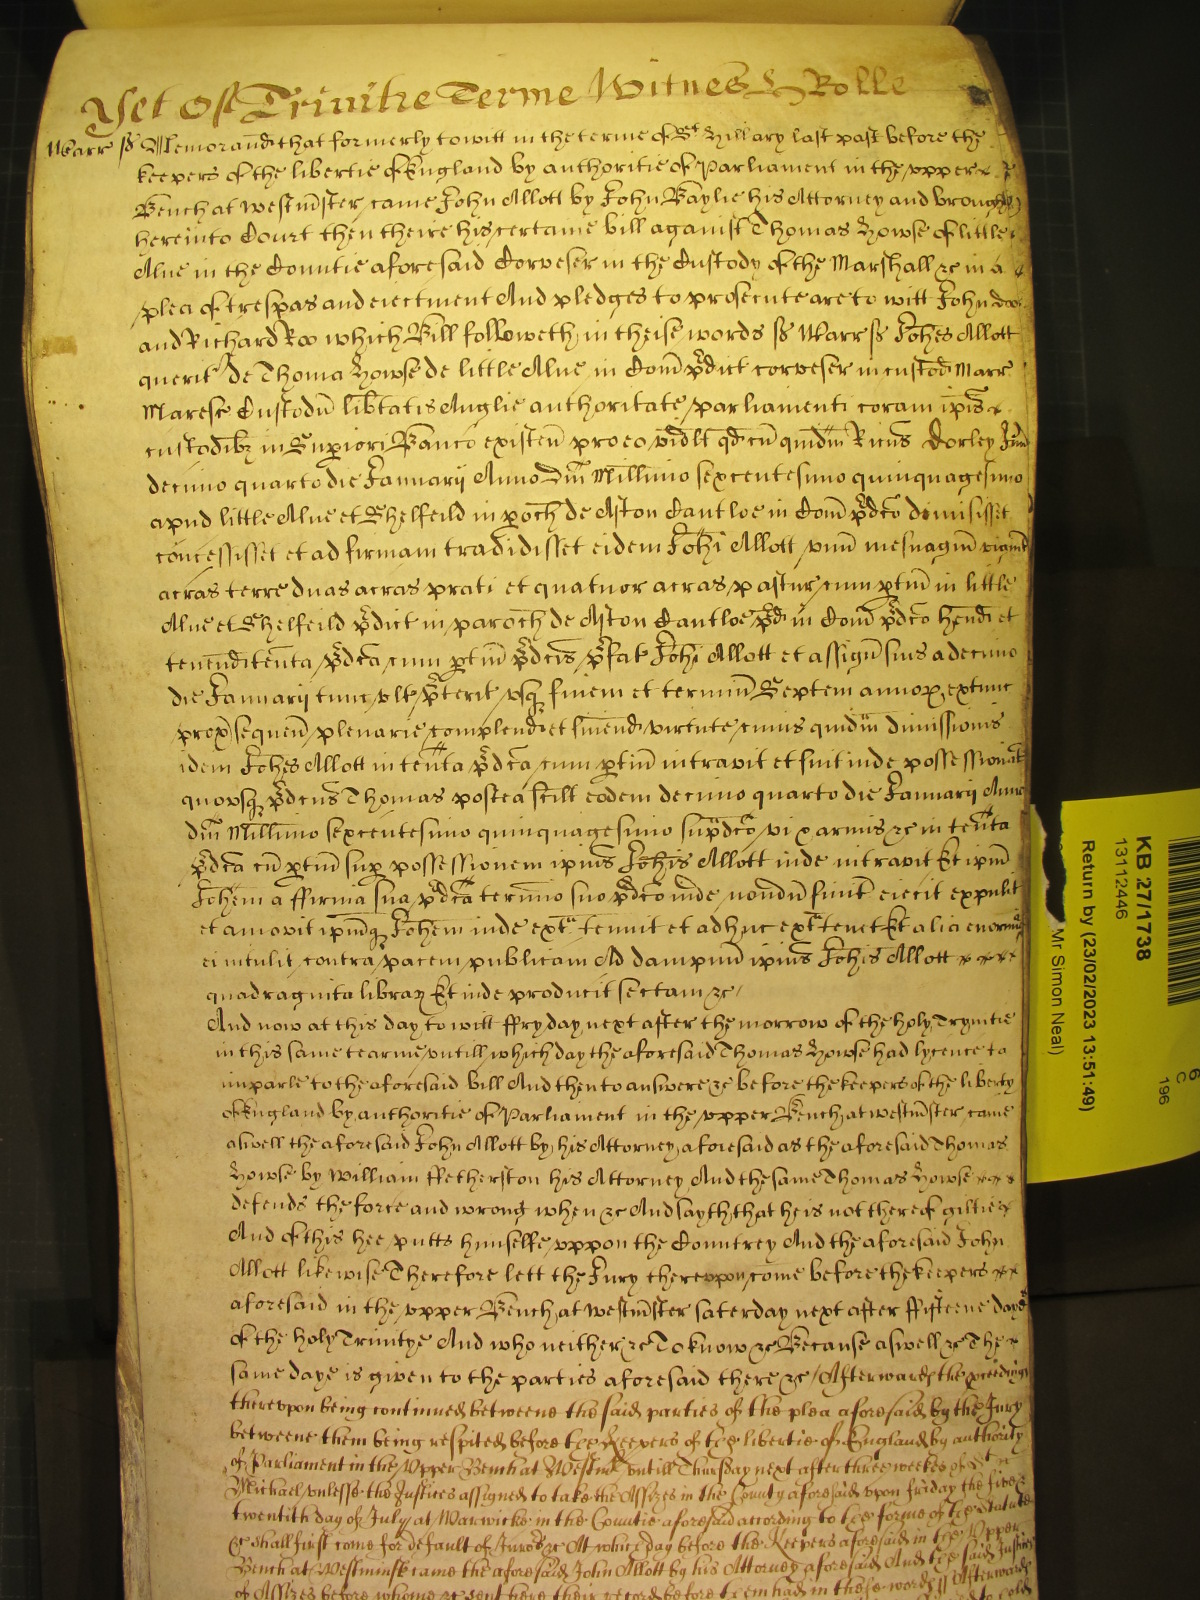 Yet Of Trinitie Terme Witnes &c Rolle
Warr ss Memorand that formerly to witt in the terme of St Hillary last past before the
keepers of the libertie of England by authoritie of Parliament in the upper
Bench at Westmster came John Allott by John Baylie his Attorney and brought
here into Court then theire his certaine bill against Thomas Howse of little
Alne in the Countie aforesaid Corveser in the Custody of the Marshall &c in a
plea of trespas and eiectment And pledges to prosecute are to witt John doo
and Richard Roo which Bill followeth in theise words ss Warr ss Johes Allott
querit de Thoma Howse de little Alne in Com pdict corveser in custod Marr
Maresc Custodu libtatis Anglie authoritate parliamenti coram ipis
custodibz in Supiori Banco existen pro eo vidlt qd cu quidm Ricus Dorley
decimo quarto die Januarij Anno Dni Millimo sexcentesimo quinquagesimo
apud little Alne et Shelfeild in poch de Aston Cantloe in Com pdco dimisisset
concessisset et ad firmam tradidisset eidem Johi Allott unu mesuagiu
acras terre duas acras prati et quatuor acras pastur cum ptin in little
Alne et Shelfeild pdict in paroch de Aston Cantloe pd in Com pdco hend et
tenend tenta pdca cum ptin pdcis pfat Johi Allott et assign suis a decimo
die Januarij tunc ult pterit usq finem et terminu Septem annoz extunc
prox sequen plenarie complend et finiend virtute cuius quidm dimissionis
idem Johes Allott in tenta pdca cum ptin intravit et fuit inde possessionat
quousq pdcus Thomas postea scill eodem decimo quarto die Januarij Anno
Dni Millimo sexcentesimo quinquagesimo supdco vi & armis &c in tenta
pdca cu ptin sup possessionem ipius Johis Allott inde intravit Et ipm
Johem a ffirma sua pdca termino suo pdco inde nondu finit eiecit expulit
et amovit ipmq Johem inde ext tenuit et adhuc ext tenet Et alia enormia
ei intulit contra pacem publicam Ad dampnu ipius Johis Allott
quadraginta libraz Et inde producit sectam &c
And now at this day to witt ffryday next after the morrow of the holy Trynitie
in this same tearme untill which day the aforesaid Thomas Howse had lycence to
imparle to the aforesaid bill And then to answere &c before the keepers of the liberty
of England by authoritie of Parliament in the upper Bench at Westmster came
aswell the aforesaid John Allott by his Attorney aforesaid as the aforesaid Thomas
Howse by William ffetherston his Attorney And the same Thomas Howse
defends the force and wrong when &c And sayth that he is not thereof giltie
And of this hee putts himselfe uppon the Countrey And the aforesaid John
Allott likewise Therefore lett the Jury thereuppon come before the keepers
aforesaid in the upper Bench at Westmster saterday next after ffifteene dayes
of the holy Trinitye And who neither &c To know &c Because aswell &c The
same daye is given to the parties aforesaid there &c Afterwards the pceedings
thereupon being continued betweene the said parties of the plea aforesaid by the Jury
betweene them being respited before the Keepers of the libertie of England by authority
of Parliament in the Upper Bench at Westmr untill Thursday next after three weekes of St
Michael unlesse the Justices assigned to take the Assizes in the County aforesaid upon friday the five &
twentith day of July at Warwicke in the Countie aforesaid according to the forme of the Statute
&c shall first come for default of Jurors &c At which day before the Keepers aforesaid in the Upper
Bench at Westminster came the aforesaid John Allott by his Attorney aforesaid And the said Justices
of Assizes before whome &c sent here their record before them had in these words ss Afterwards
KB 27/1738
13112446
Return by (23/02/2023 13:51:49)
Mr Simon Neal)
6
C
196